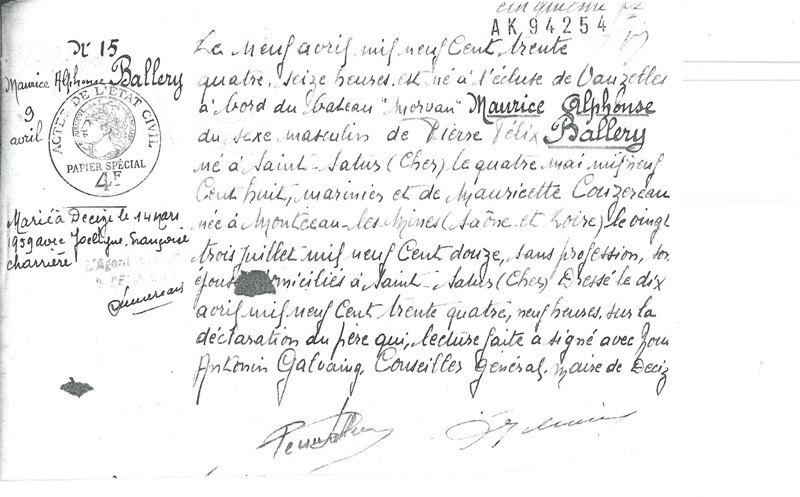 cinquième
AK 94254
N° 15
Maurice Alphonse Ballery
9
avril
ACTES DE L'ÉTAT CIVIL
PAPIER SPÉCIAL
4F
Marié à Decize le 14 mars
1959 avec Jocelyne, Françoise
charrière
L'Agent
Le Neuf avril mil neuf Cent trente
quatre, seize heures est né à l'écluse de Vauzelles
à bord du bateau "Morvan" Maurice Alphonse
du sexe masculin de Pierre Félix Ballery
né à Saint-Satur (Cher) le quatre mai mil neuf
Cent huit, marinier et de Mauricette Couzereau
née à Montceau-les-Mines (Saône et Loire) le vingt
trois juillet mil neuf Cent douze, sans profession, son
épouse domiciliés à Saint-Satur (Cher) Dressé le dix
avril mil neuf Cent trente quatre, neuf heures sur la
déclaration du père qui, lecture faite a signé avec Nous
Antonin Galvaing, Conseiller général, maire de Deciz